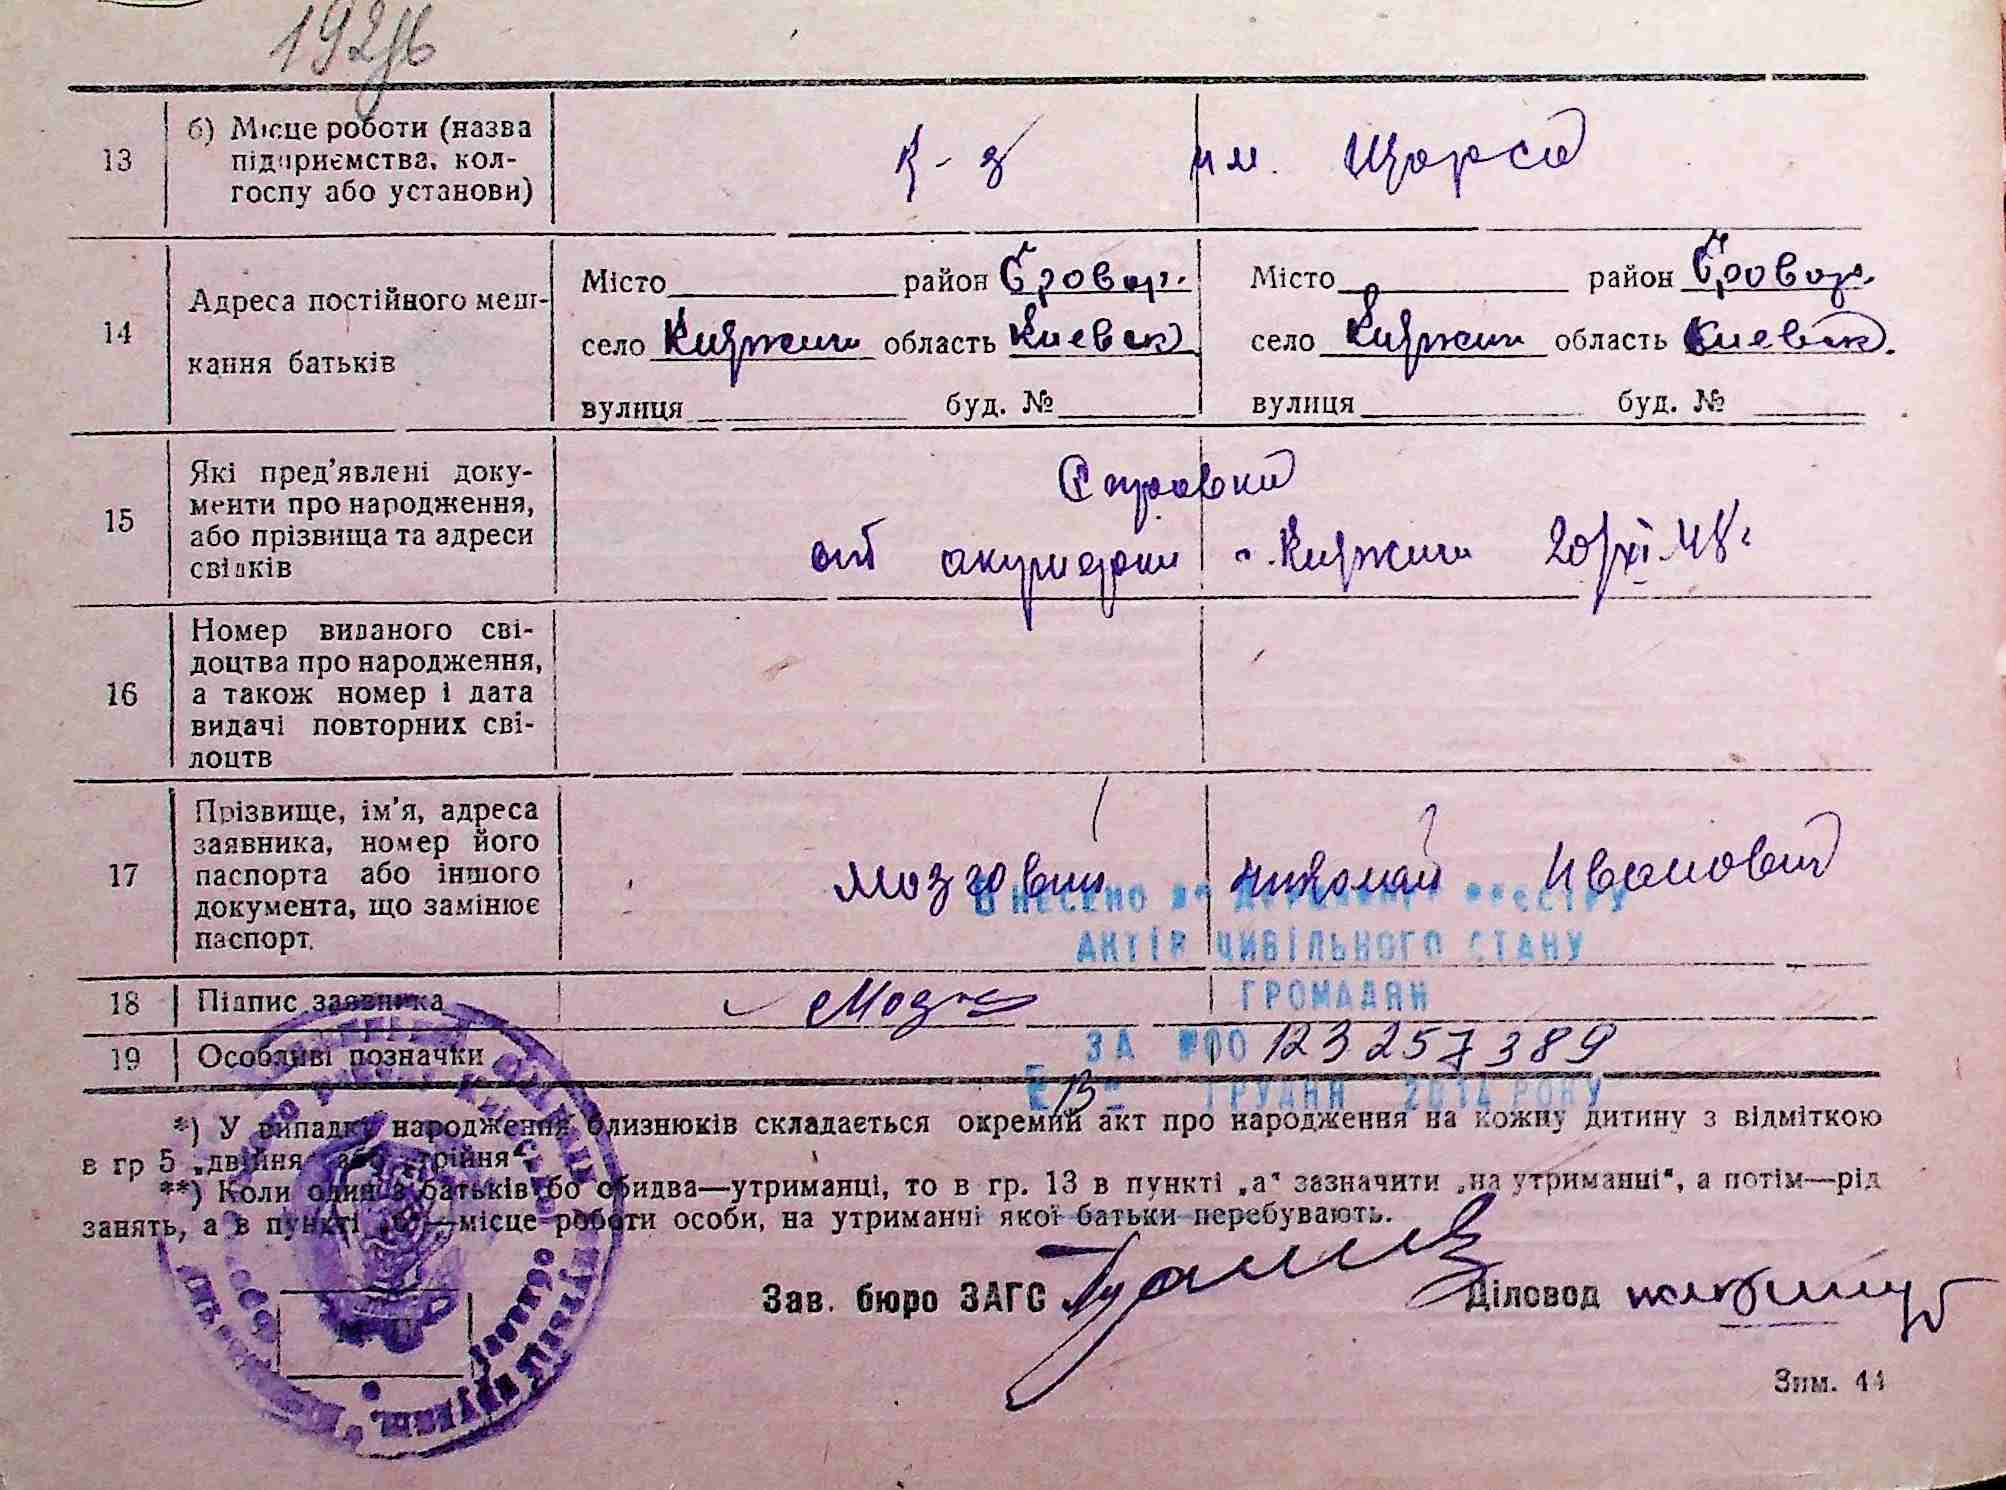 13
б) Місце роботи (назва
підприємства, кол-
госпу або установи)
к-з им. Щорса
14
Адреса постійного меш-
кання батьків
Місто район Бровар.
село Княжичи область Киевск
вулиця буд. №
Місто район Бровар.
село Княжичи область Киевск.
вулиця буд. №
15
Які пред’явлені доку-
менти про народження,
або прізвища та адреси
свідків
Справка
от акушерки с. Княжичи 20/XI 48 г
16
Номер виданого сві-
доцтва про народження,
а також номер і дата
видачі повторних сві-
доцтв
17
Прізвище, ім’я, адреса
заявника, номер його
паспорта або іншого
документа, що замінює
паспорт.
Мозговий Николай Иванович
ВНЕСЕНО ДО ДЕРЖАВНОГО РЕЄСТРУ
АКТІВ ЦИВІЛЬНОГО СТАНУ
ГРОМАДЯН
18
Підпис заявника
19
Особливі позначки
ЗА №00123257389
"13" ГРУДНЯ 2014 РОКУ
*) У випадку народження близнюків складається окремий акт про народження на кожну дитину з відміткою
в гр 5 „двійня“ або „трійня“.
**) Коли один з батьків або обидва—утриманці, то в гр. 13 в пункті „а“ зазначити „на утриманні“, а потім—рід
занять, а в пункті „б“—місце роботи особи, на утриманні якої батьки перебувають.
Зав. бюро ЗАГС
Діловод
Зим. 44